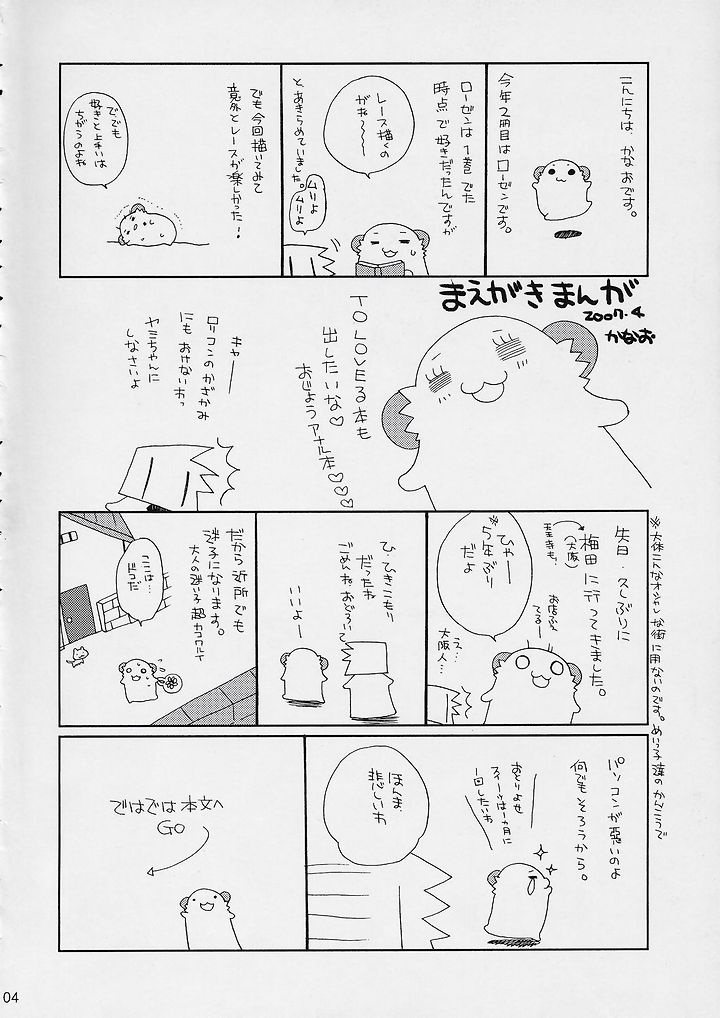 こんにちは、かなおです。
今年2冊目はローゼンです。
ローゼンは1巻でた
時点で好きだったんですが
レース描くの
がね〜〜〜
と、あきらめていました。
ムリよ
ムリよ
でも今回描いてみて
意外とレースが楽しかった！
でも
好きと上手いは
ちがうのよね
まえがきまんが
2007.4
かなお
TO LOVEる本も
出したいな♡
おじょうアナル本♡♡♡
キャー
ロリコンのかざかみ
にもおけないわっ
ヤミちゃんに
しなさいよ
先日・久しぶりに
梅田に行ってきました。
(大阪)
天王寺も。
お店ふえ
てるー
ひゃー
5年ぶり
だよ
え…
大阪人…
ひ・ひきこもり
だったね
ごめんね おどろいて
いいよー
だから近所でも
迷子になります。
大人の迷い子超カコワルイ
ここは…
ドコだ
※大体こんなオシャレな街に用ないのです。めいっ子達のかんこうで
パソコンが悪いのよ
何でもそろうから。
おとりよせ
スイーツは一ヵ月に
一回したいわ
ほんま、
悲しいわ
ではでは本文へ
GO
04